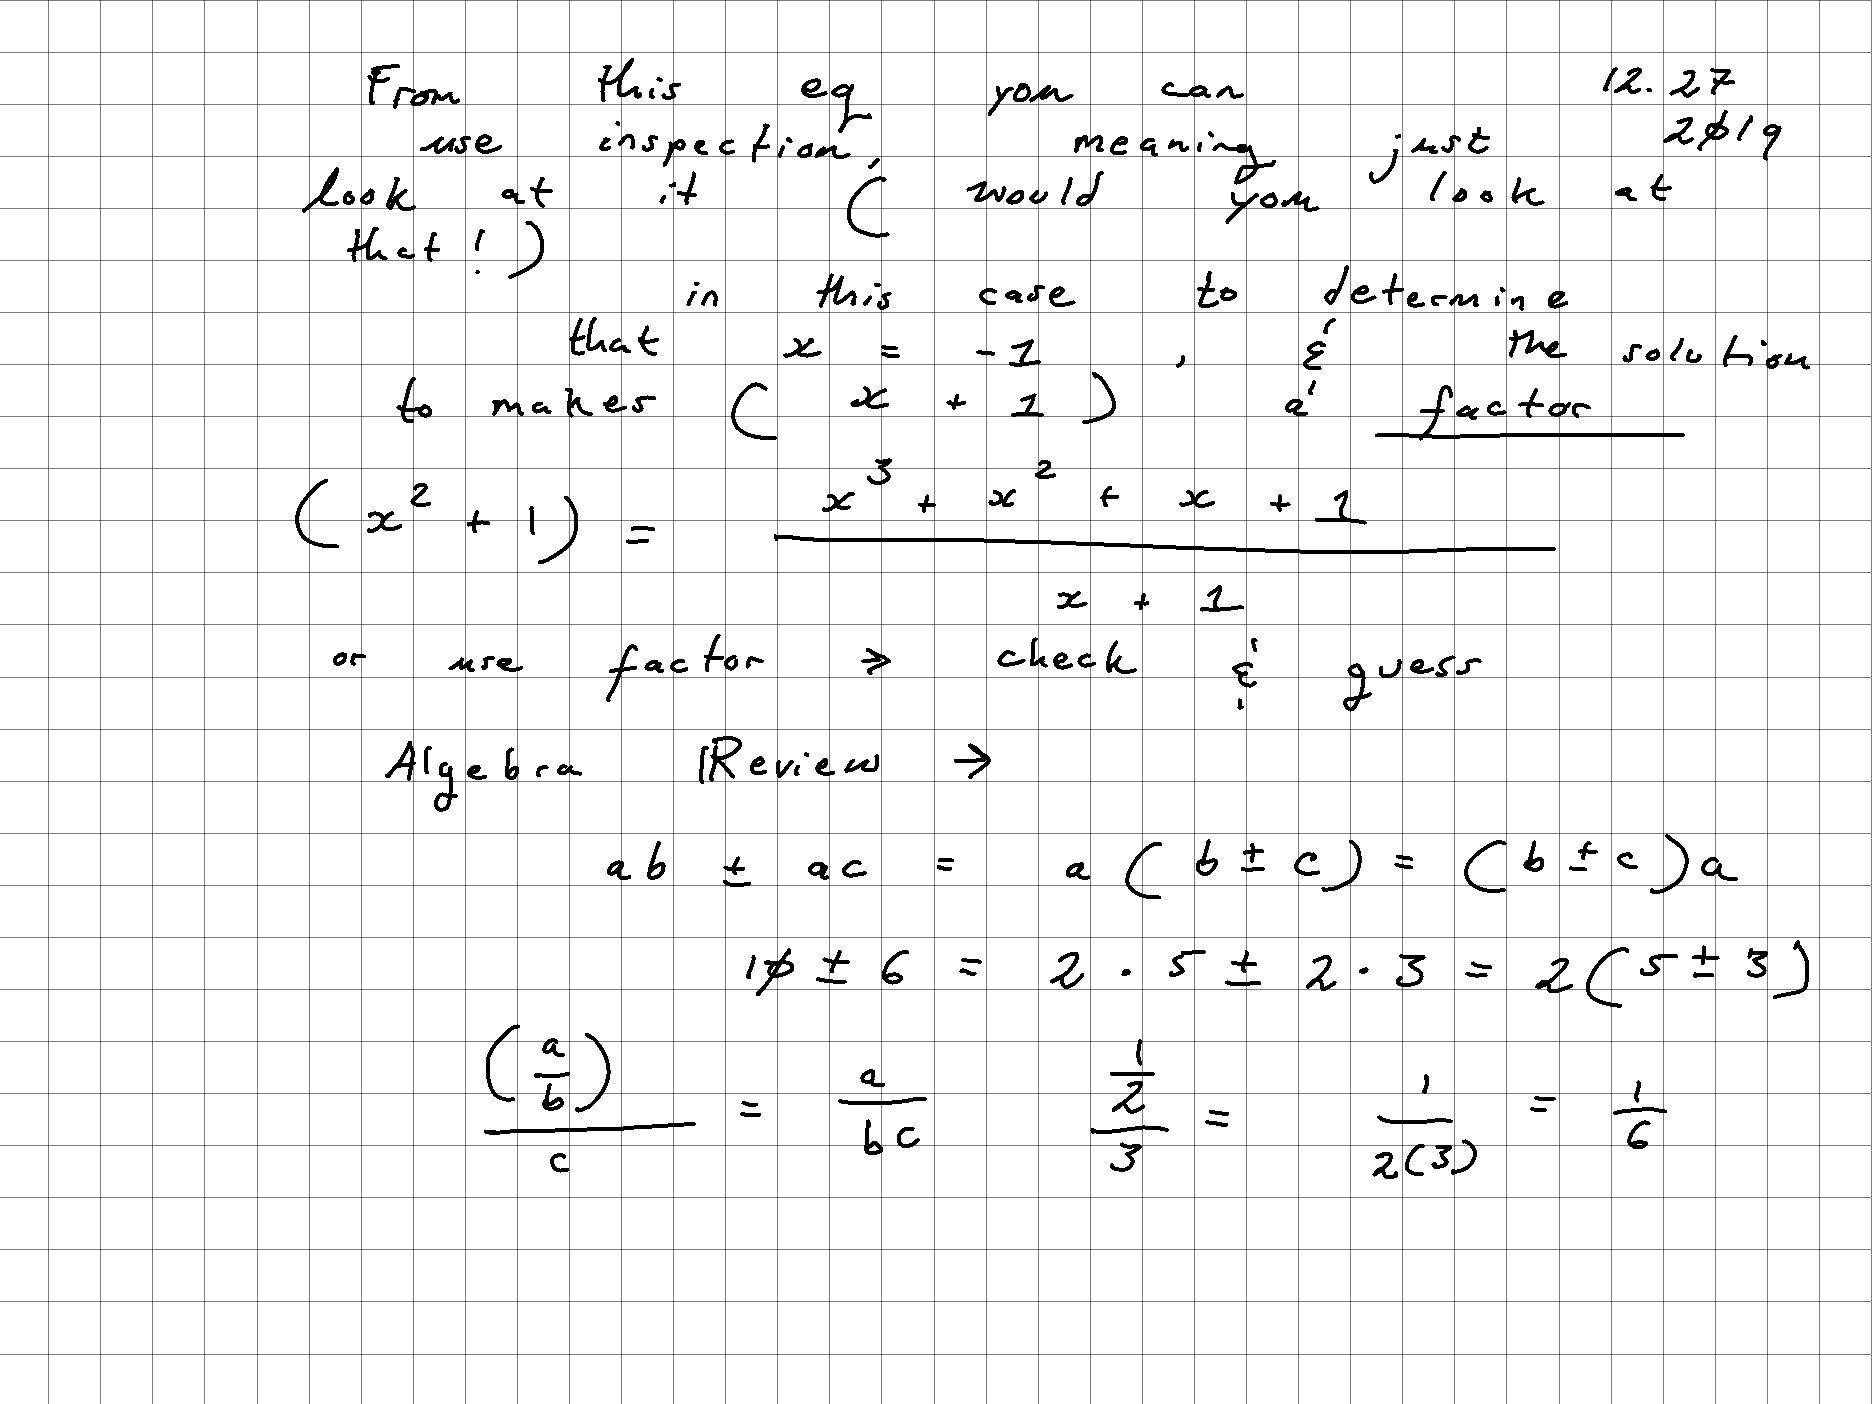 From this eq you can 12.27
use inspection, meaning just 2019
look at it ( would you look at
that! )
in this case to determine
that x = -1 , & the solution
to makes ( x + 1 ) a' factor
(x² + 1) = (x³ + x² + x + 1) / (x + 1)
or use factor → check & guess
Algebra Review →
ab ± ac = a ( b ± c ) = ( b ± c ) a
10 ± 6 = 2 · 5 ± 2 · 3 = 2 ( 5 ± 3 )
(a/b)/c = a/bc 1/2/3 = 1/2(3) = 1/6